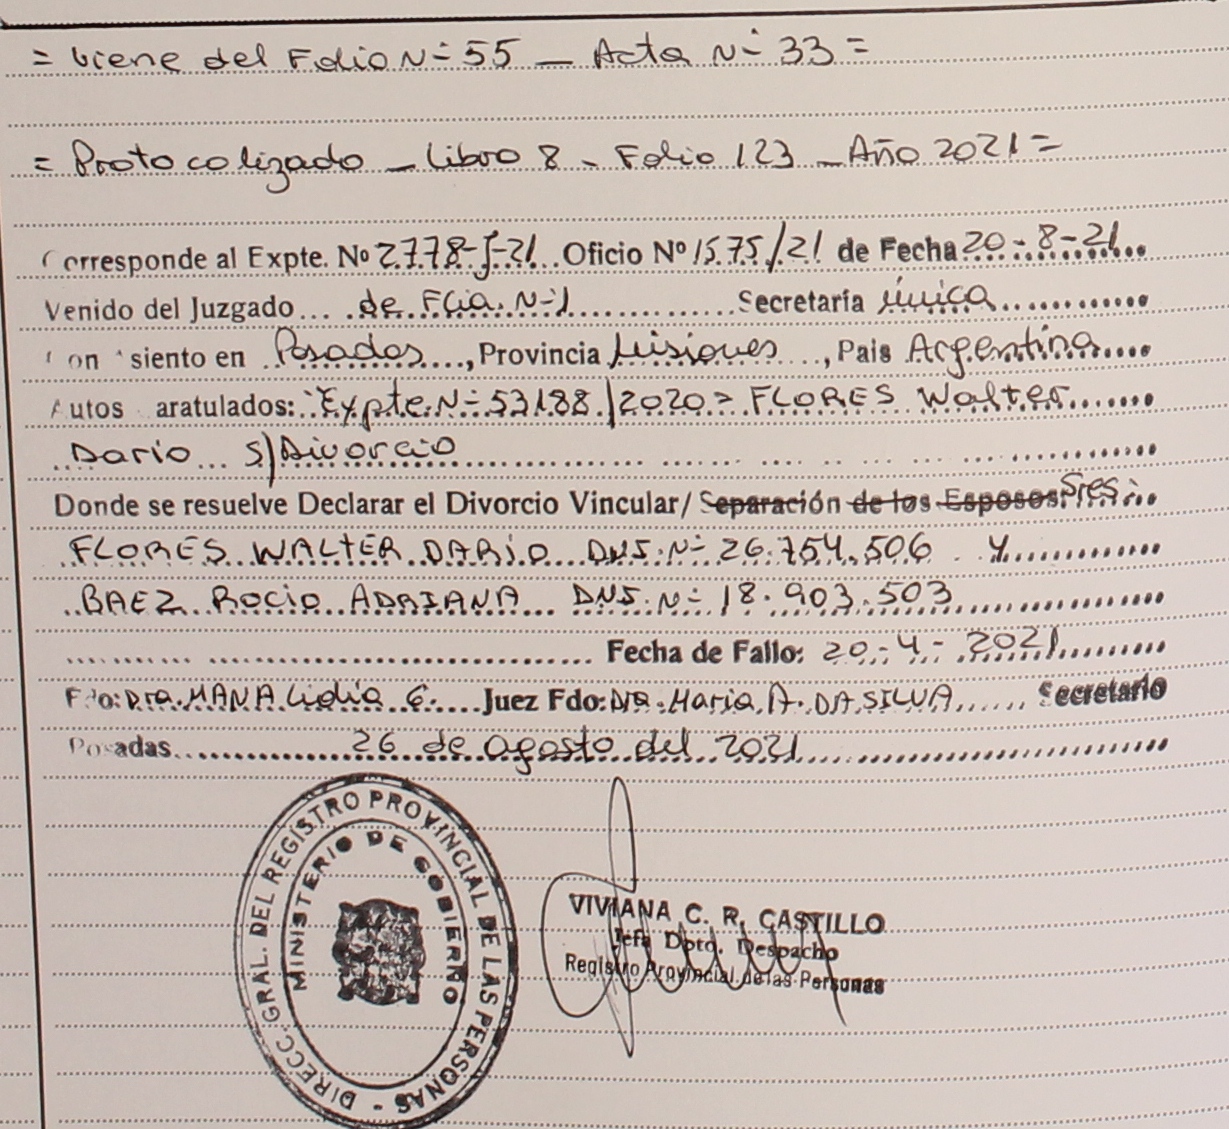 = viene del Folio Nº 55 — Acta Nº 33 =
= Protocolizado — Libro 8 - Folio 123 — Año 2021 =
Corresponde al Expte. Nº 2778-J-21 Oficio Nº 1575/21 de Fecha 20-8-21
Venido del Juzgado de Flia. Nº 1 Secretaría Única
Con Asiento en Posadas, Provincia Misiones, Pais Argentina
Autos aratulados: Expte. Nº 53188/2020 = FLORES Walter
Dario S/Divorcio
Donde se resuelve Declarar el Divorcio Vincular/ Separación de los Esposos: Sres:
FLORES WALTER DARIO DNI. Nº 26.754.506 Y
BAEZ ROCIO ADRIANA DNI. Nº 18.903.503
Fecha de Fallo: 20-4-2021
Fdo: Dra. MANA Lidia E. Juez Fdo: Dra. Maria A. DA SILVA Secretario
Posadas 26 de agosto del 2021
DIRECC. GRAL. DEL REGISTRO PROVINCIAL DE LAS PERSONAS -
MINISTERIO DE GOBIERNO
VIVIANA C. R. CASTILLO
Jefa Dpto. Despacho
Registro Provincial de las Personas